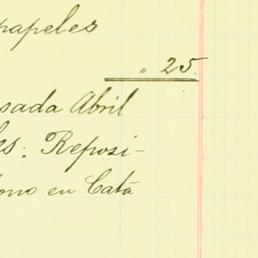 papeles
" 25.
sada Abril
es: Reposi-
ono en Catá